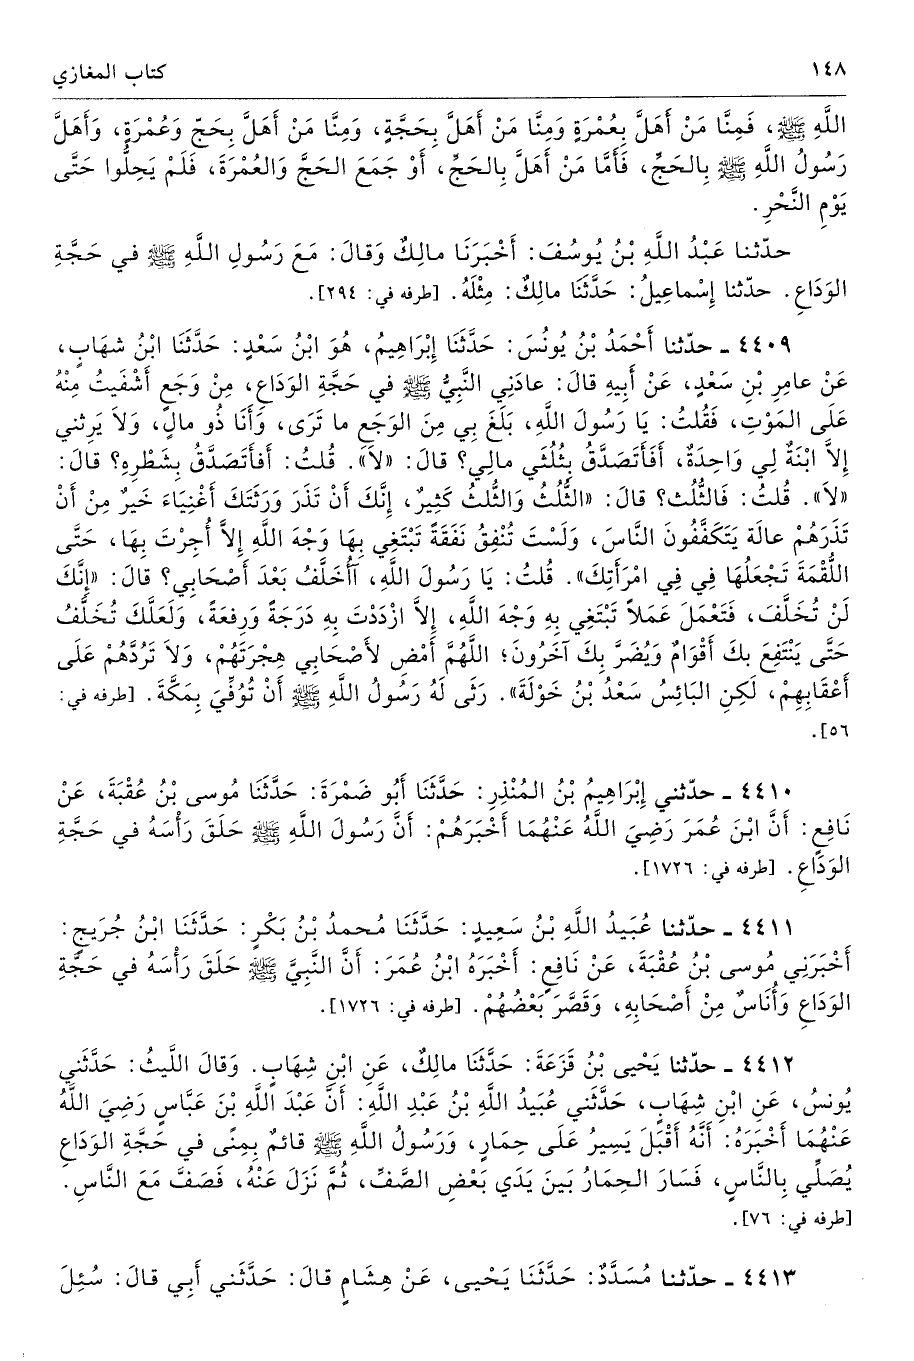 ١٤٨ كتاب المغازي
اللَّهِ ﷺ، فَمِنَّا مَنْ أَهَلَّ بِعُمْرَةٍ وَمِنَّا مَنْ أَهَلَّ بِحَجَّةٍ، وَمِنَّا مَنْ أَهَلَّ بِحَجّ وَعُمْرَةٍ، وَأَهَلَّ
رَسُولُ اللَّهِ ﷺ بِالحَجِّ، فَأَمَّا مَنْ أَهَلَّ بِالحَجِّ، أَوْ جَمَعَ الحَجَّ وَالعُمْرَةَ، فَلَمْ يَحِلُّوا حَتَّى
يَوْمِ النَّحْرِ.
حدّثنا عَبْدُ اللَّهِ بْنُ يُوسُفَ: أَخْبَرَنَا مالِكٌ وَقالَ: مَعَ رَسُولِ اللَّهِ ﷺ في حَجَّةِ
الوَدَاعِ. حدّثنا إِسْماعِيلُ: حَدَّثَنَا مالِكٌ: مِثْلَهُ. [طرفه في: ٢٩٤].
٤٤٠٩ ـ حدّثنا أَحْمَدُ بْنُ يُونُسَ: حَدَّثَنَا إِبْرَاهِيمُ، هُوَ ابْنُ سَعْدٍ: حَدَّثَنَا ابْنُ شهَابٍ،
عَنْ عامِرِ بْنِ سَعْدٍ، عَنْ أَبِيهِ قالَ: عادَنِي النَّبِيُّ ﷺ في حَجَّةِ الوَدَاعِ، مِنْ وَجَعٍ أَشْفَيتُ مِنْهُ
عَلَى المَوْتِ، فَقُلتُ: يَا رَسُولَ اللَّهِ، بَلَغَ بِي مِنَ الوَجَعِ ما تَرَى، وَأَنَا ذُو مالٍ، وَلاَ يَرِثني
إِلاَّ ابْنَةٌ لِي وَاحِدَةٌ، أَفَأَتَصَدَّقُ بِثُلُثَي مالِي؟ قالَ: «لاَ». قُلتُ: أَفأَتَصَدَّقُ بِشَطْرِهِ؟ قالَ:
«لاَ». قُلتُ: فَالثُّلُث؟ قالَ: «الثُّلُثُ وَالثُّلثُ كَثِيرٌ، إِنَّكَ أَنْ تَذَرَ وَرَثَتَكَ أَغْنِيَاءَ خَيرٌ مِنْ أَنْ
تَذَرَهُمْ عالَة يَتَكَفَّفُونَ النَّاسَ، وَلَسْتَ تُنْفِقُ نَفَقَةً تَبْتَغِي بِهَا وَجْهَ اللَّهِ إِلاَّ أُجِرْتَ بِهَا، حَتَّى
اللُّقْمَةَ تَجْعَلُهَا فِي فِي امْرَأَتِكَ». قُلتُ: يَا رَسُولَ اللَّهِ، آأُخَلَّفُ بَعْدَ أَصْحَابِي؟ قالَ: «إِنَّكَ
لَنْ تُخَلَّفَ، فَتَعْمَلَ عَمَلاً تَبْتَغِي بِهِ وَجْهَ اللَّهِ، إِلاَّ ازْدَدْتَ بِهِ دَرَجَةً وَرِفعَةً، وَلَعَلَّكَ تُخَلَّفُ
حَتَّى يَنْتَفِعَ بِكَ أَقْوَامٌ وَيُضَرَّ بِكَ آخَرُونَ؛ اللَّهُمَّ أَمْضِ لأَصْحَابِي هِجْرَتَهُمْ، وَلاَ تَرُدَّهُمْ عَلَى
أَعْقَابِهِمْ، لَكِنِ البَائِسُ سَعْدُ بْنُ خَوْلَةَ». رَثَى لَهُ رَسُولُ اللَّهِ ﷺ أَنْ تُوُفِّيَ بِمَكَّةَ. [طرفه في:
٥٦].
٤٤١٠ ـ حدّثني إِبْرَاهِيمُ بْنُ المُنْذِرِ: حَدَّثَنَا أَبُو ضَمْرَةَ: حَدَّثَنَا مُوسى بْنُ عُقْبَةَ، عَنْ
نَافِعٍ: أَنَّ ابْنَ عُمَرَ رَضِيَ اللَّهُ عَنْهُمَا أَخْبَرَهُمْ: أَنَّ رَسُولَ اللَّهِ ﷺ حَلَقَ رَأْسَهُ في حَجَّةِ
الوَدَاعِ. [طرفه في: ١٧٢٦].
٤٤١١ ـ حدّثنا عُبَيدُ اللَّهِ بْنُ سَعِيدٍ: حَدَّثَنَا مُحمدُ بْنُ بَكْرٍ: حَدَّثَنَا ابْنُ جُرَيجٍ:
أَخْبَرَنِي مُوسى بْنُ عُقْبَةَ، عَنْ نَافِعٍ: أَخْبَرَهُ ابْنُ عُمَرَ: أَنَّ النَّبِيَّ ﷺ حَلَقَ رَأْسَهُ في حَجَّةِ
الوَدَاعِ وَأُنَاسٌ مِنْ أَصْحَابِهِ، وَقَصَّرَ بَعْضُهُمْ. [طرفه في: ١٧٢٦].
٤٤١٢ ـ حدّثنا يَحْيى بْنُ قَزَعَةَ: حَدَّثَنَا مالِكٌ، عَنِ ابْنِ شِهَابٍ. وَقالَ اللَّيثُ: حَدَّثَني
يُونسُ، عَنِ ابْنِ شِهَابٍ، حَدَّثَني عُبَيدُ اللَّهِ بْنُ عَبْدِ اللَّهِ: أَنَّ عَبْدَ اللَّهِ بْنَ عَبَّاسٍ رَضِيَ اللَّهُ
عَنْهُمَا أَخْبَرَهُ: أَنَّهُ أَقْبَلَ يَسِيرُ عَلَى حِمَارٍ، وَرَسُولُ اللَّهِ ﷺ قائمٌ بِمِنًى في حَجَّةِ الوَدَاعِ
يُصَلِّي بِالنَّاسِ، فَسَارَ الحِمَارُ بَينَ يَدَي بَعْضِ الصَّفِّ، ثُمَّ نَزَلَ عَنْهُ، فَصَفَّ مَعَ النَّاسِ.
[طرفه في: ٧٦].
٤٤١٣ ـ حدّثنا مُسَدَّدٌ: حَدَّثَنَا يَحْيى، عَنْ هِشَامٍ قالَ: حَدَّثَني أَبِي قالَ: سُئِلَ